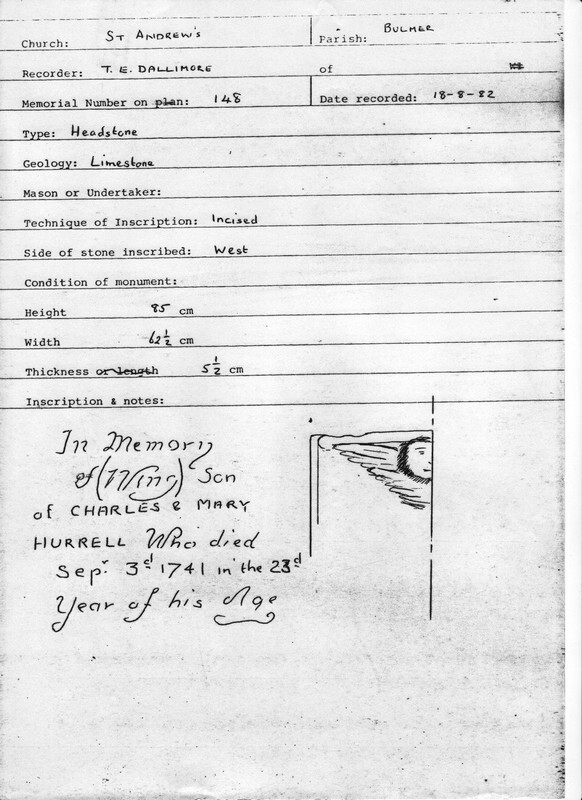 Church: ST ANDREW'S Parish: BULMER
Recorder: T. E. DALLIMORE of
Memorial Number on plan: 148 Date recorded: 18-8-82
Type: Headstone
Geology: Limestone
Mason or Undertaker:
Technique of Inscription: Incised
Side of stone inscribed: West
Condition of monument:
Height 85 cm
Width 62 1/2 cm
Thickness or length 5 1/2 cm
Inscription & notes:
In Memory
of (Wing) Son
of CHARLES & MARY
HURRELL Who died
Sepr. 3d 1741 in the 23d
Year of his Age